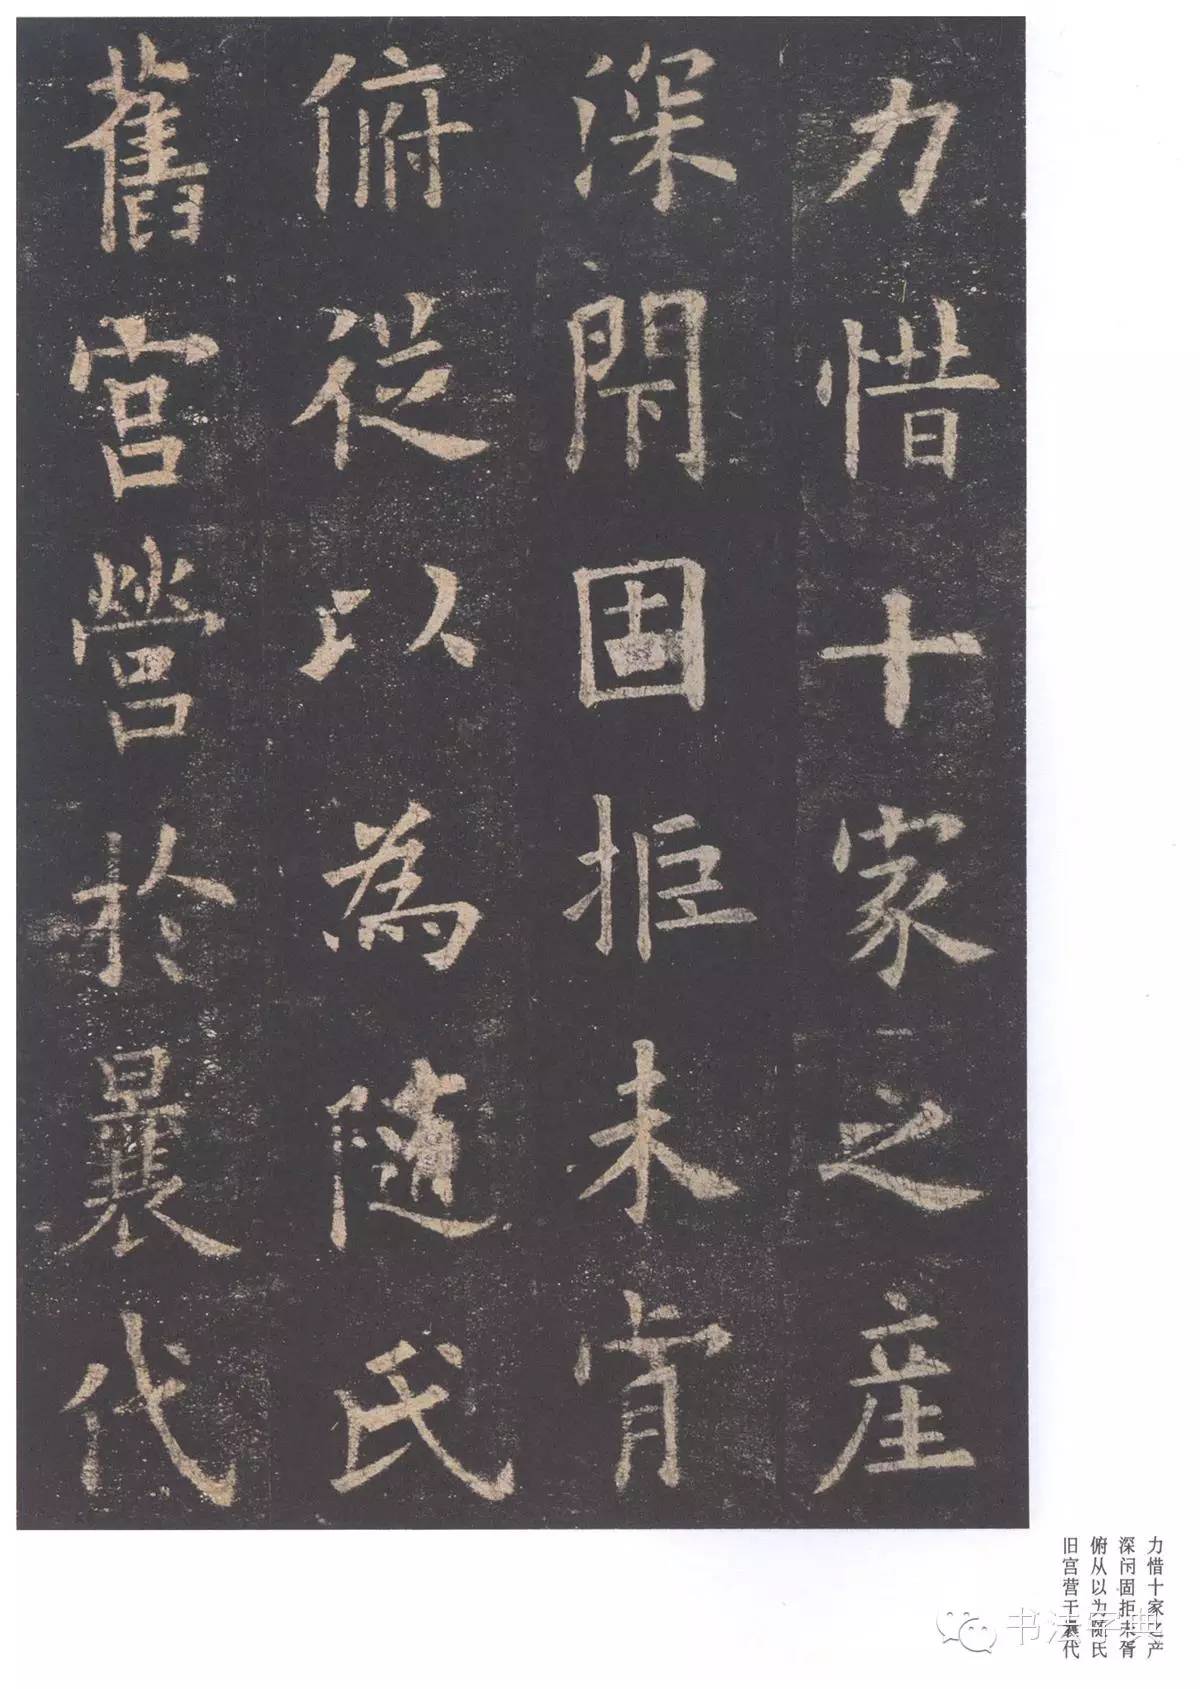 力惜十家之產
深閇固拒未肯
俯從以為隨氏
舊宮營於曩代
力惜十家之产
深闭固拒未肯
俯从以为随氏
旧宫营于曩代
书法字典